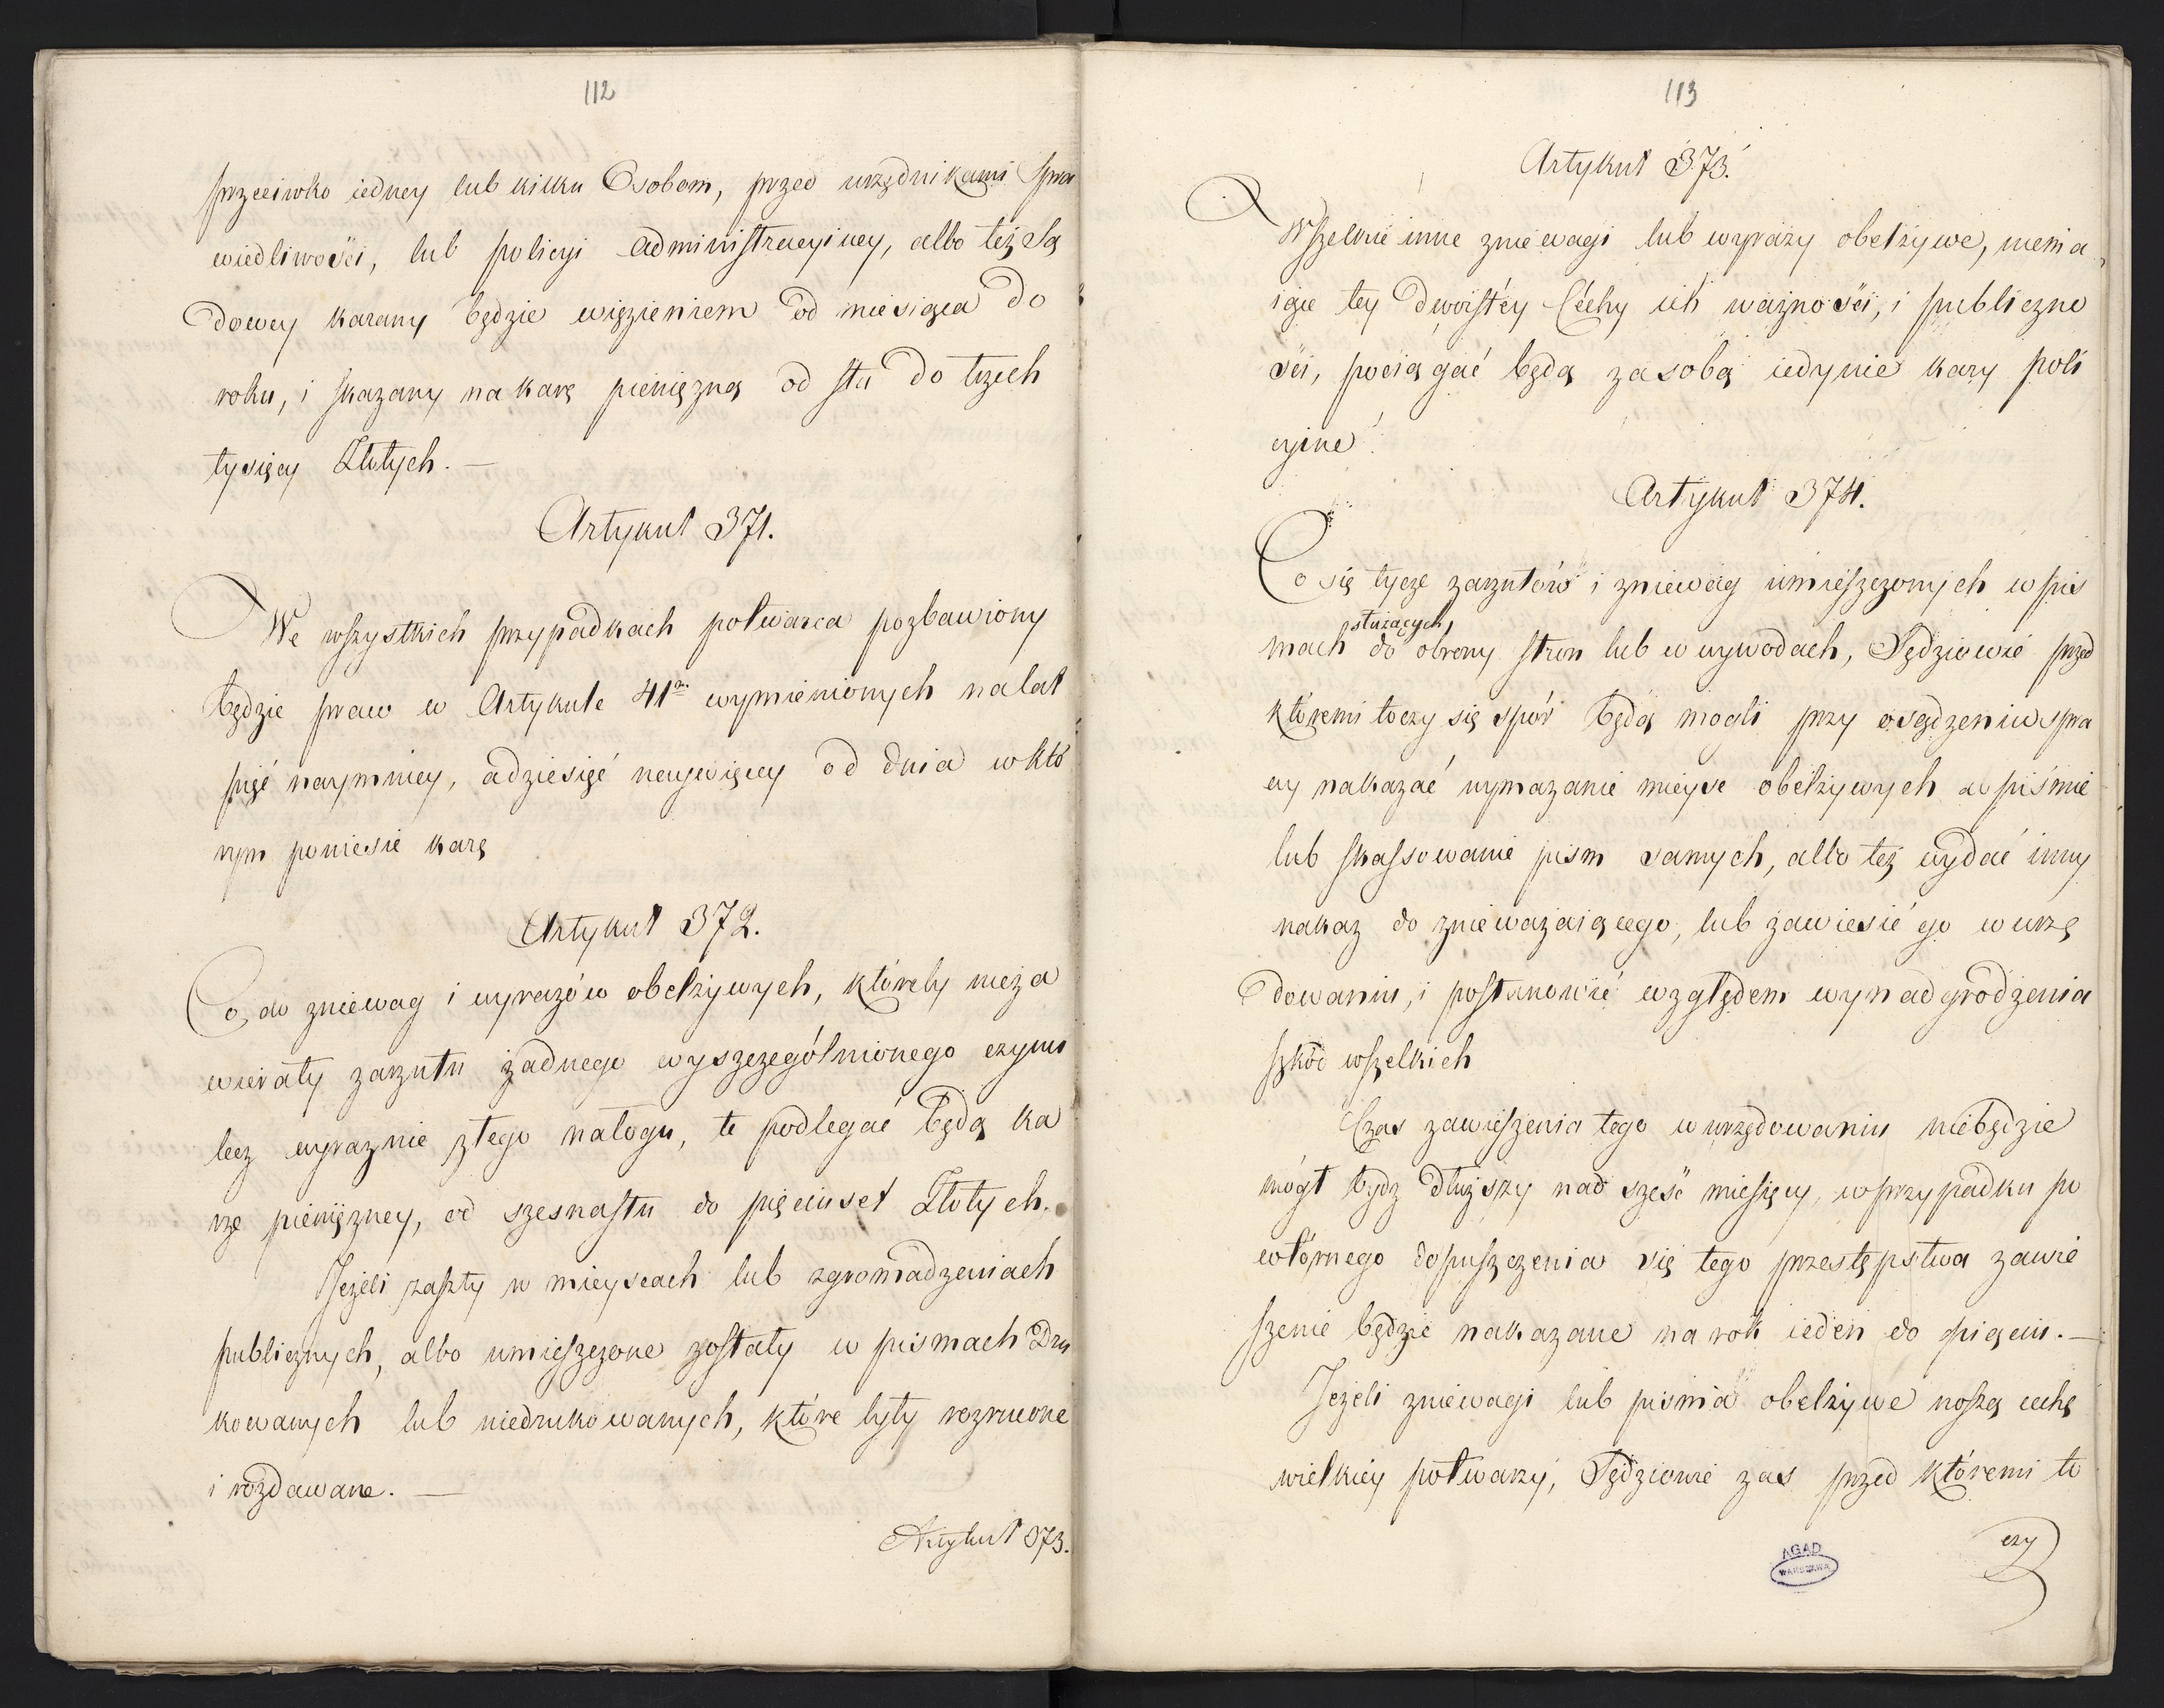 112
przeciwko iedney lub kilku Osobom, przed urzędnikami Spra
wiedliwości, lub policyi administracyiney, albo też Są
dowey karany będzie więzieniem od miesiąca do
roku, i skazany na karę pieniężną od stu do trzech
tysięcy Złotych. —
Artykuł 371.
We wszystkich przypadkach potwarca pozbawiony
będzie praw w Artykule 41m wymienionych na lat
pięć naymniey, a dziesięć naywięcey od dnia w któ
rym poniesie karę
Artykuł 372.
Co do zniewag i wyrazów obelżywych, któreby nieza
wierały zarzutu żadnego wyszczególnionego czynu
lecz wyraznie złego nałogu, te podlegać będą ka
rze pieniężney, od szesnastu do pięciuset Złotych.
Jeżeli zaszły w mieyscach lub zgromadzeniach
publicznych, albo umieszczone zostały w pismach Dru
kowanych lub niedrukowanych, które były rozrucone
i rozdawane. —
Artykuł 373.
113
Artykuł 373.
Wszelkie inne zniewagi lub wyrazy obelżywe, niema
iące tey dwoistéy Céchy ich ważności, i publiczno
ści, pociągać będą za sobą iedynie kary poli
cyine
Artykuł 374.
Co się tycze zarzutów i zniewag umieszczonych w pis
służących
mach do obrony stron lub w wywodach, Sędziowie przed
któremi toczy się spór będą mogli przy osądzeniu spra
wy nakazać wymazanie mieysc obelżywych w piśmie
lub skassowanie pism samych, albo też wydać inny
nakaz do znieważaiącego, lub zawiesić go w urzę
dowaniu, i postanowić względem wynadgrodzenia
szkód wszelkich
Czas zawieszenia tego w urzędowaniu niebędzie
mógł bydz dłuższy nad sześć miesięcy, w przypadku po
wtórnego dopuszczenia się tego przestępstwa zawie
szenie będzie nakazane na rok ieden do pięciu. —
Jeżeli zniewagi lub pisma obelżywe noszą cechę
wielkiéy potwarzy, Sędziowie zas przed któremi to
czy
AGAD
WARSZAWA